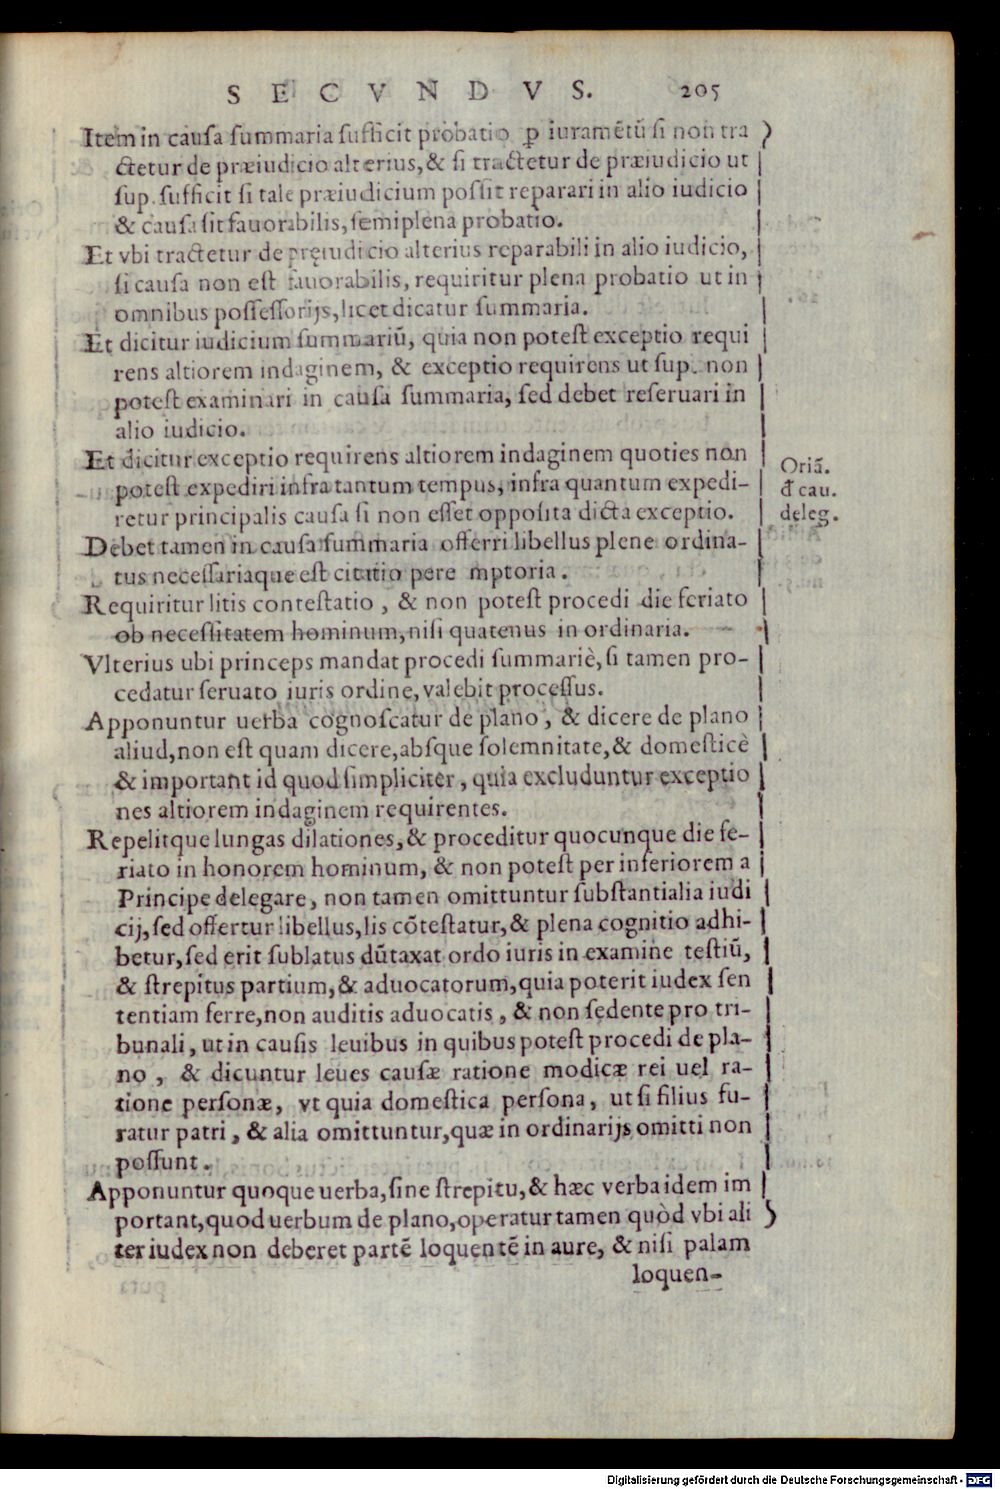 SECVNDVS. 205
Item in causa summaria sufficit probatio ꝑ iuramẽtũ si non tra
ctetur de præiudicio alterius, & si tractetur de præiudicio ut
sup. sufficit si tale præiudicium possit reparari in alio iudicio
& causa sit fauorabilis, semiplena probatio.
Et vbi tractetur de pręiudicio alterius reparabili in alio iudicio,
si causa non est fauorabilis, requiritur plena probatio ut in
omnibus possessorijs, licet dicatur summaria.
Et dicitur iudicium summariũ, quia non potest exceptio requi
rens altiorem indaginem, & exceptio requirens ut sup. non
potest examinari in causa summaria, sed debet reseruari in
alio iudicio.
Et dicitur exceptio requirens altiorem indaginem quoties non
potest expediri infra tantum tempus, infra quantum expedi-
retur principalis causa si non esset opposita dicta exceptio.
Oriã.
đ cau.
deleg.
Debet tamen in causa summaria offerri libellus plene ordina-
tus necessariaque est citatio pere mptoria.
Requiritur litis contestatio, & non potest procedi die feriato
ob necessitatem hominum, nisi quatenus in ordinaria.
Vlterius ubi princeps mandat procedi summariè, si tamen pro-
cedatur seruato iuris ordine, valebit processus.
Apponuntur uerba cognoscatur de plano, & dicere de plano
aliud, non est quam dicere, absque solemnitate, & domesticè
& important id quod simpliciter, quia excluduntur exceptio
nes altiorem indaginem requirentes.
Repelitque lungas dilationes, & proceditur quocunque die fe-
riato in honorem hominum, & non potest per inferiorem a
Principe delegare, non tamen omittuntur substantialia iudi
cij, sed offertur libellus, lis cõtestatur, & plena cognitio adhi-
betur, sed erit sublatus dũtaxat ordo iuris in examine testiũ,
& strepitus partium, & aduocatorum, quia poterit iudex sen
tentiam ferre, non auditis aduocatis, & non sedente pro tri-
bunali, ut in causis leuibus in quibus potest procedi de pla-
no, & dicuntur leues causæ ratione modicæ rei uel ra-
tione personæ, vt quia domestica persona, ut si filius fu-
ratur patri, & alia omittuntur, quæ in ordinarijs omitti non
possunt.
Apponuntur quoque uerba, sine strepitu, & hæc verba idem im
portant, quod uerbum de plano, operatur tamen quòd vbi ali
ter iudex non deberet partẽ loquentẽ in aure, & nisi palam
loquen-
Digitalisierung gefördert durch die Deutsche Forschungsgemeinschaft - DFG